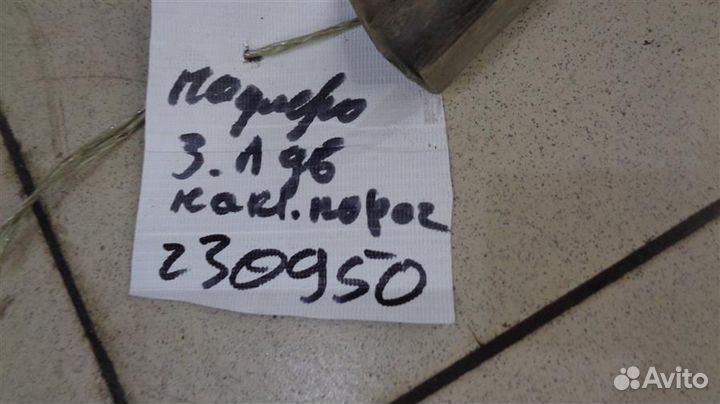 Паджеро
3. Л дв
накл. порог
230950
Avito